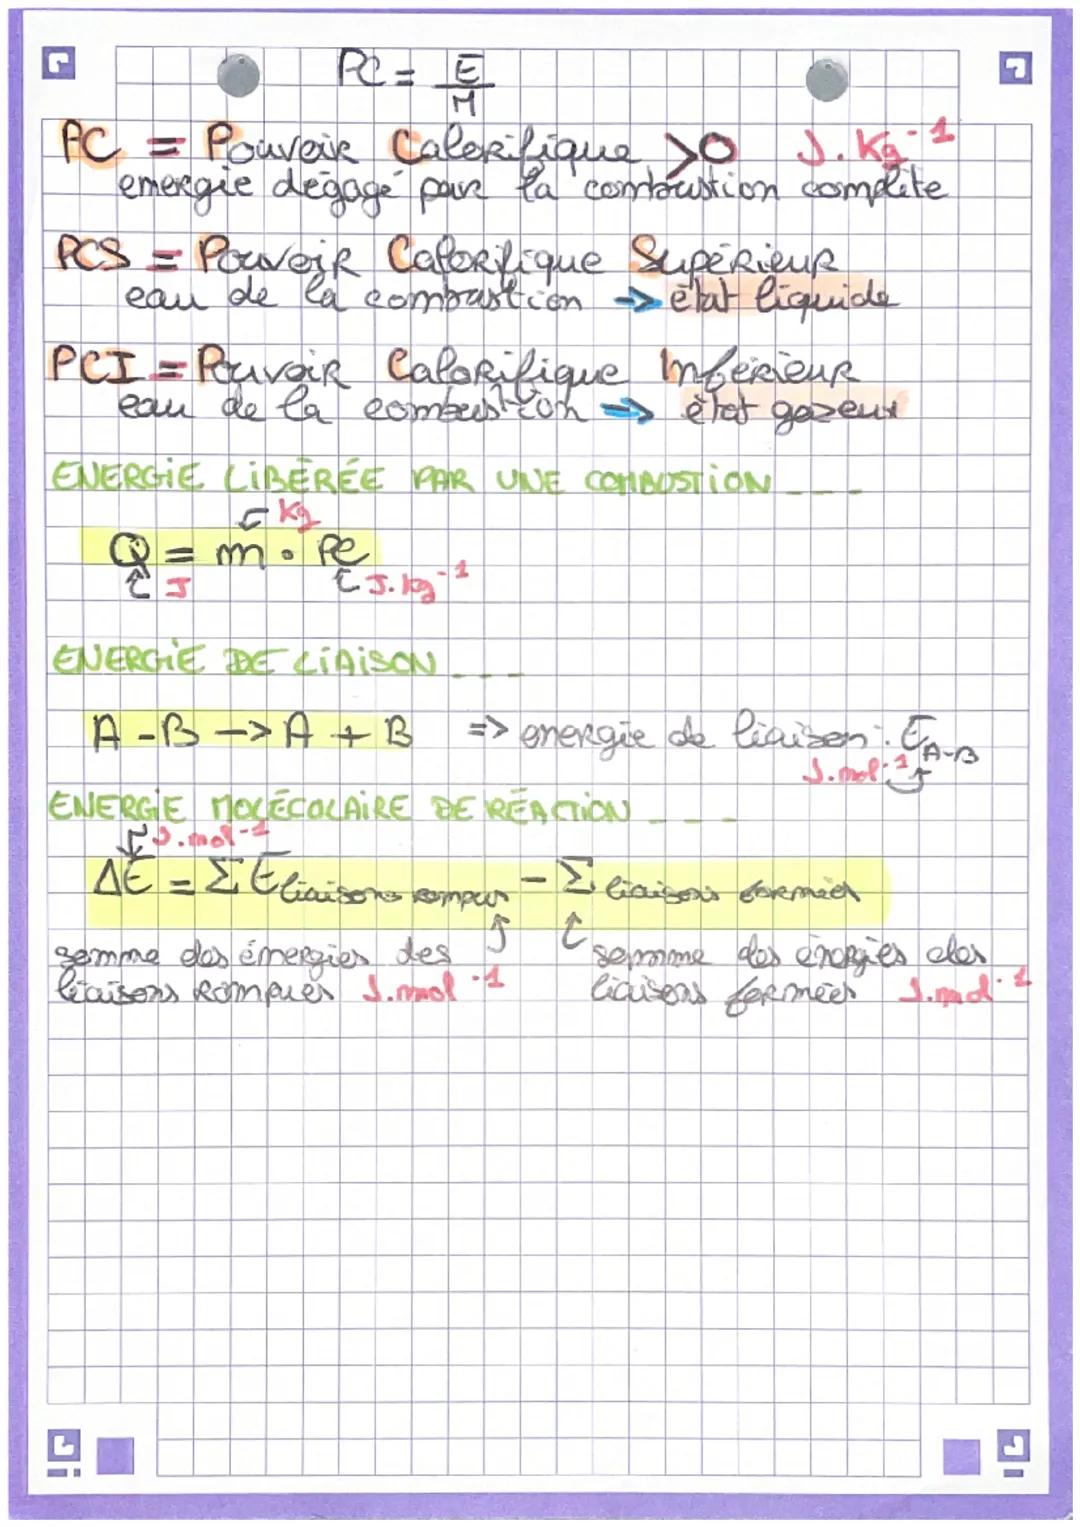 PC = E/M
PC = Pouvoir Calorifique >0 J.Kg-1
energie dégagé par la combustion complète
PCS = Pouvoir Calorifique Supérieur
eau de la combustion → état liquide
PCI = Pouvoir Calorifique Inférieur
eau de la combustion → état gazeux
ENERGIE LIBÉRÉE PAR UNE COMBUSTION ---
Kg
Q = m . Pc
J J.kg-1
ENERGIE DE LIAISON ---
A-B -> A + B => energie de liaison : E A-B
J.mol-1
ENERGIE MOLÉCOLAIRE DE RÉACTION ---
J.mol-1
ΔE = Σ E liaisons rompus - Σ liaisons formées
somme des énergies des
liaisons Rompues J.mol-1
somme des énergies des
liaisons formées J.mol-1